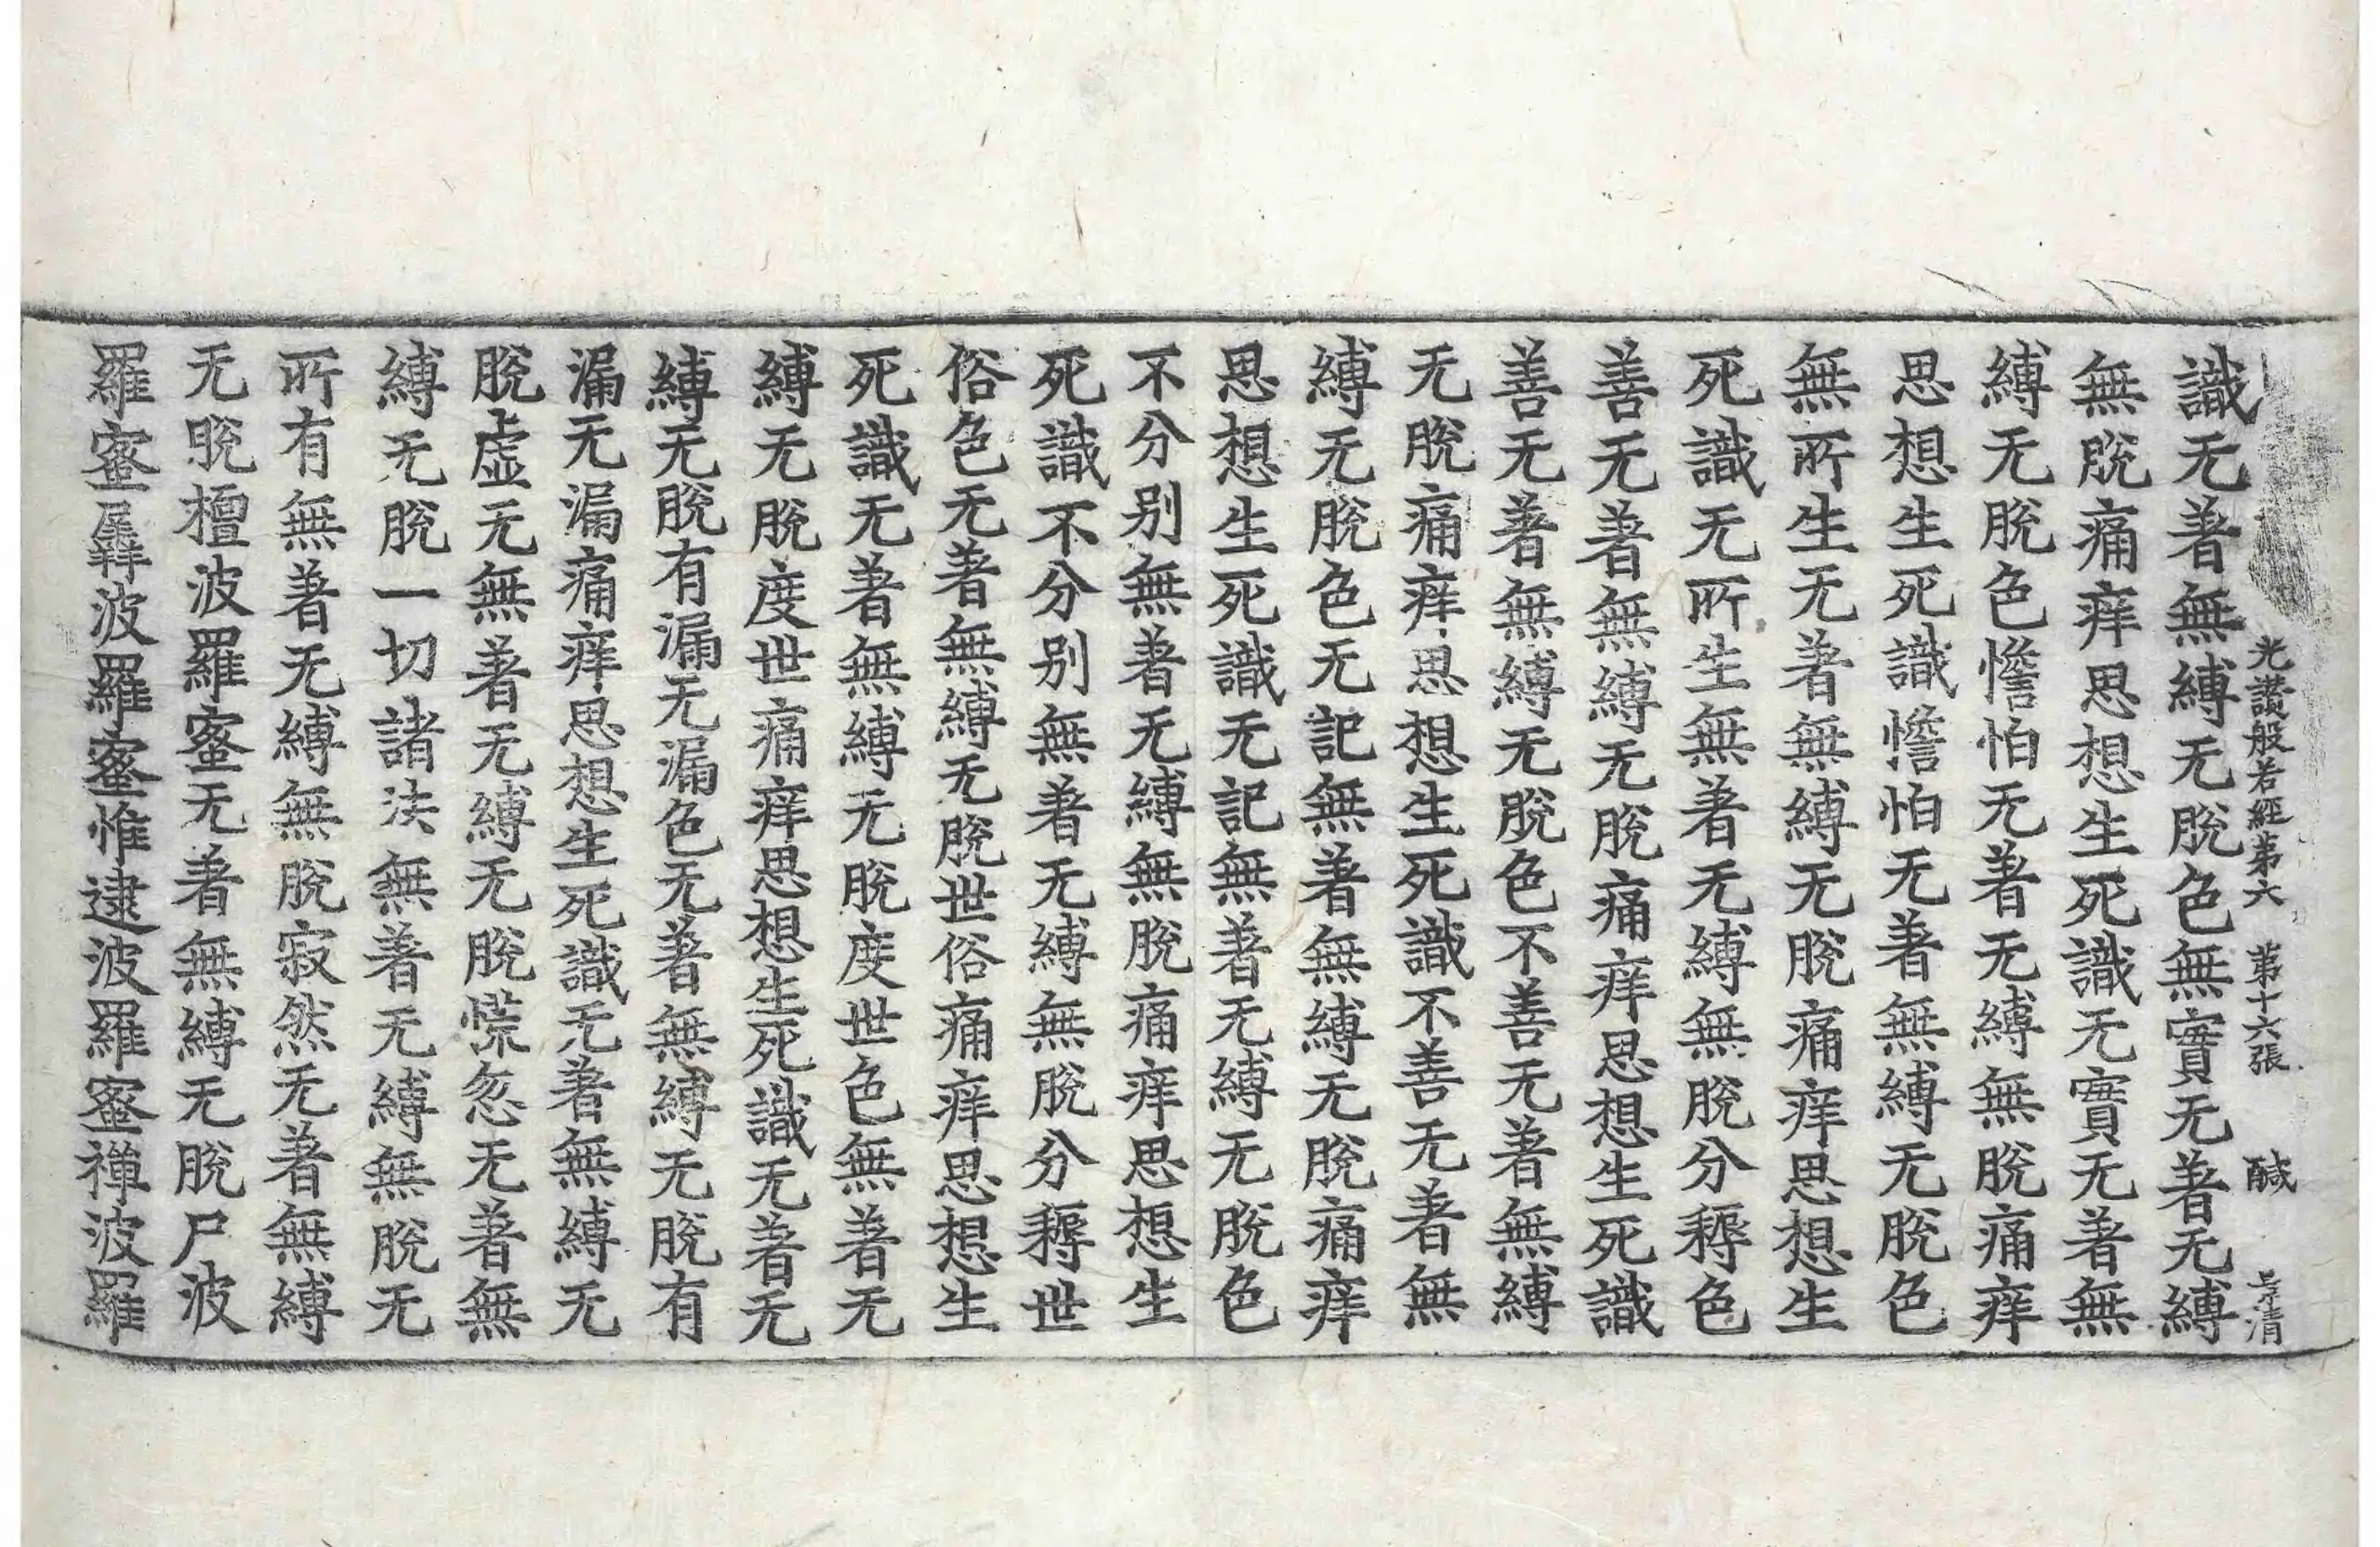 光讃般若經第六 第十六張 醎
識无著無縛无脫色無實无著无縛
無脫痛痒思想生死識无實无著無
縛无脫色憺怕无著无縛無脫痛痒
思想生死識憺怕无著無縛无脫色
無所生无著無縛无脫痛痒思想生
死識无所生無著无縛無脫分耨色
善无著無縛无脫痛痒思想生死識
善无著無縛无脫色不善无著無縛
无脫痛痒思想生死識不善无著無
縛无脫色无記無著無縛无脫痛痒
思想生死識无記無著无縛无脫色
不分別無著无縛無脫痛痒思想生
死識不分別無著无縛無脫分耨世
俗色无著無縛无脫世俗痛痒思想生
死識无著無縛无脫度世色無著无
縛无脫度世痛痒思想生死識无著无
縛无脫有漏无漏色无著無縛无脫有
漏无漏痛痒思想生死識无著無縛无
脫虛无無著无縛无脫慌忽无著無
縛无脫一切諸法無著无縛無脫无
所有無著无縛無脫寂然无著無縛
无脫檀波羅蜜无著無縛无脫尸波
羅蜜羼波羅蜜惟逮波羅蜜禪波羅